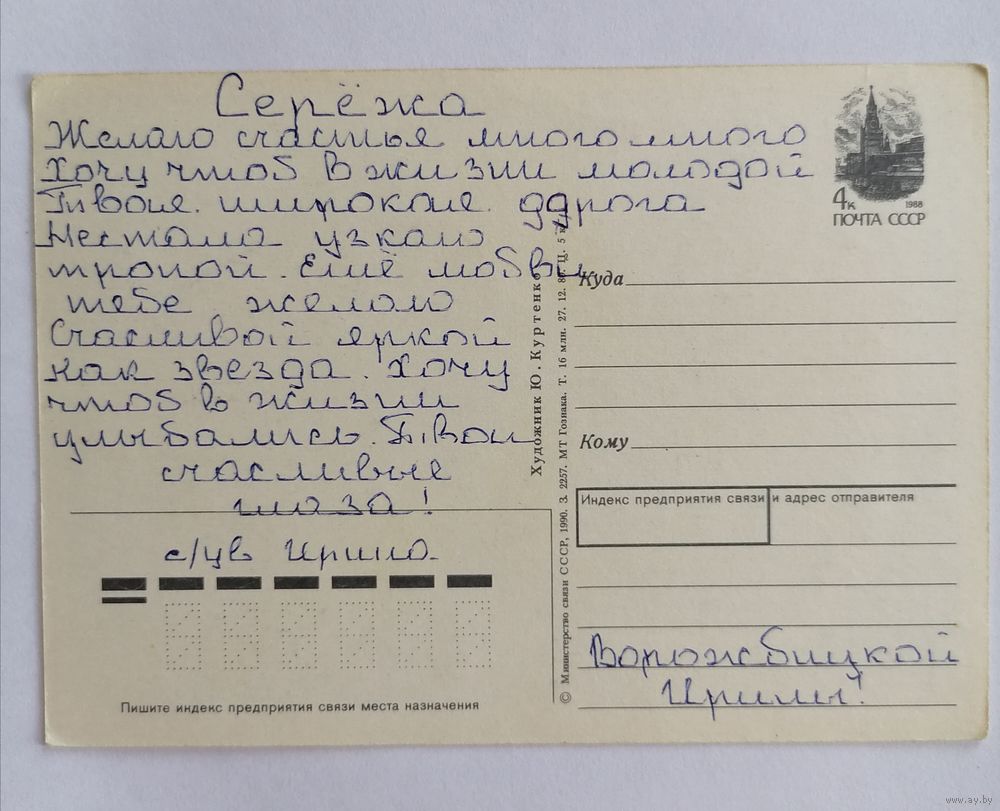 Серёжа
Желаю счастья много много
Хочу чтоб в жизни молодой
Твоя широкая дорога
Нестала узкаю
тропой. Ешё любви
тебе желаю
Счасливой яркой
как звезда. Хочу
чтоб в жизни
улыбались. Твои
счасливые
глаза!
с/ув Ирина.
Пишите индекс предприятия связи места назначения
Художник Ю. Куртенко
© Министерство связи СССР, 1990. З. 2257. МТ Гознака. Т. 16 млн. 27. 12. 89. Ц. 5 к.
4к 1988
ПОЧТА СССР
Куда
Кому
Индекс предприятия связи и адрес отправителя
Ворожбицкой
Ирины!
www.ay.by